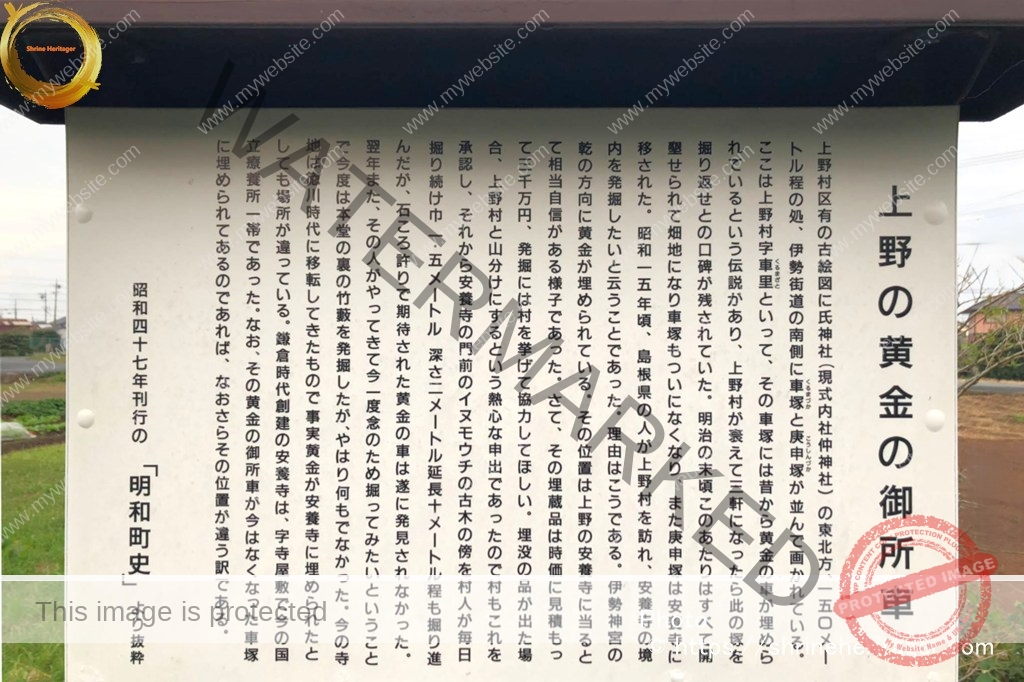 上野の黄金の御所車
上野村区有の古絵図に氏神社（現式内社仲神社）の東北方一五〇メー
トル程の処、伊勢街道の南側に車塚と庚申塚が並んで画かれている。
くるまづか
こうしんづか
ここは上野村字車里といって、その車塚には昔から黄金の車が埋めら
くるまざと
れているという伝説があり、上野村が衰えて三軒になったら此の塚を
掘り返せとの口碑が残されていた。明治の末頃このあたりはすべて開
墾せられて畑地になり車塚もついになくなり、また庚申塚は安養寺に
移された。昭和一五年頃、島根県の人が上野村を訪れ、安養寺の境
内を発掘したいと云うことであった。理由はこうである。伊勢神宮の
乾の方向に黄金が埋められている。その位置は上野の安養寺に当ると
て相当自信がある様子であった。さて、その埋蔵品は時価に見積もっ
て三千万円、発掘には村を挙げて協力してほしい。埋没の品が出た場
合、上野村と山分けにするという熱心な申出であったので村もこれを
承認し、それから安養寺の門前のイヌモウチの古木の傍を村人が毎日
掘り続け巾一、五メートル 深さ二メートル延長十メートル程も掘り進
んだが、石ころ許りで期待された黄金の車は遂に発見されなかった。
翌年また、その人がやってきて今一度念のため掘ってみたいということ
で今度は本堂の裏の竹藪を発掘したが、やはり何もでなかった。今の寺
地は徳川時代に移転してきたもので事実黄金が安養寺に埋められたと
しても場所が違っている。鎌倉時代創建の安養寺は、字寺屋敷で今の国
立療養所一帯であった。なお、その黄金の御所車が今はなくなった車塚
に埋められてあるのであれば、なおさらその位置が違う訳である。
昭和四十七年刊行の 「明和町史」 より抜粋
Shrine Heritager
WATERMARKED
www.mywebsite.com
PROTECTED IMAGE
This image is protected